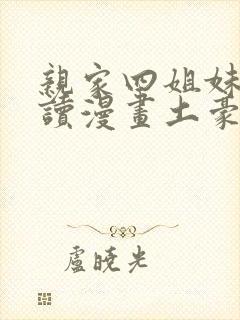 親家四姐妹
讀漫畫土豪
盧曉光